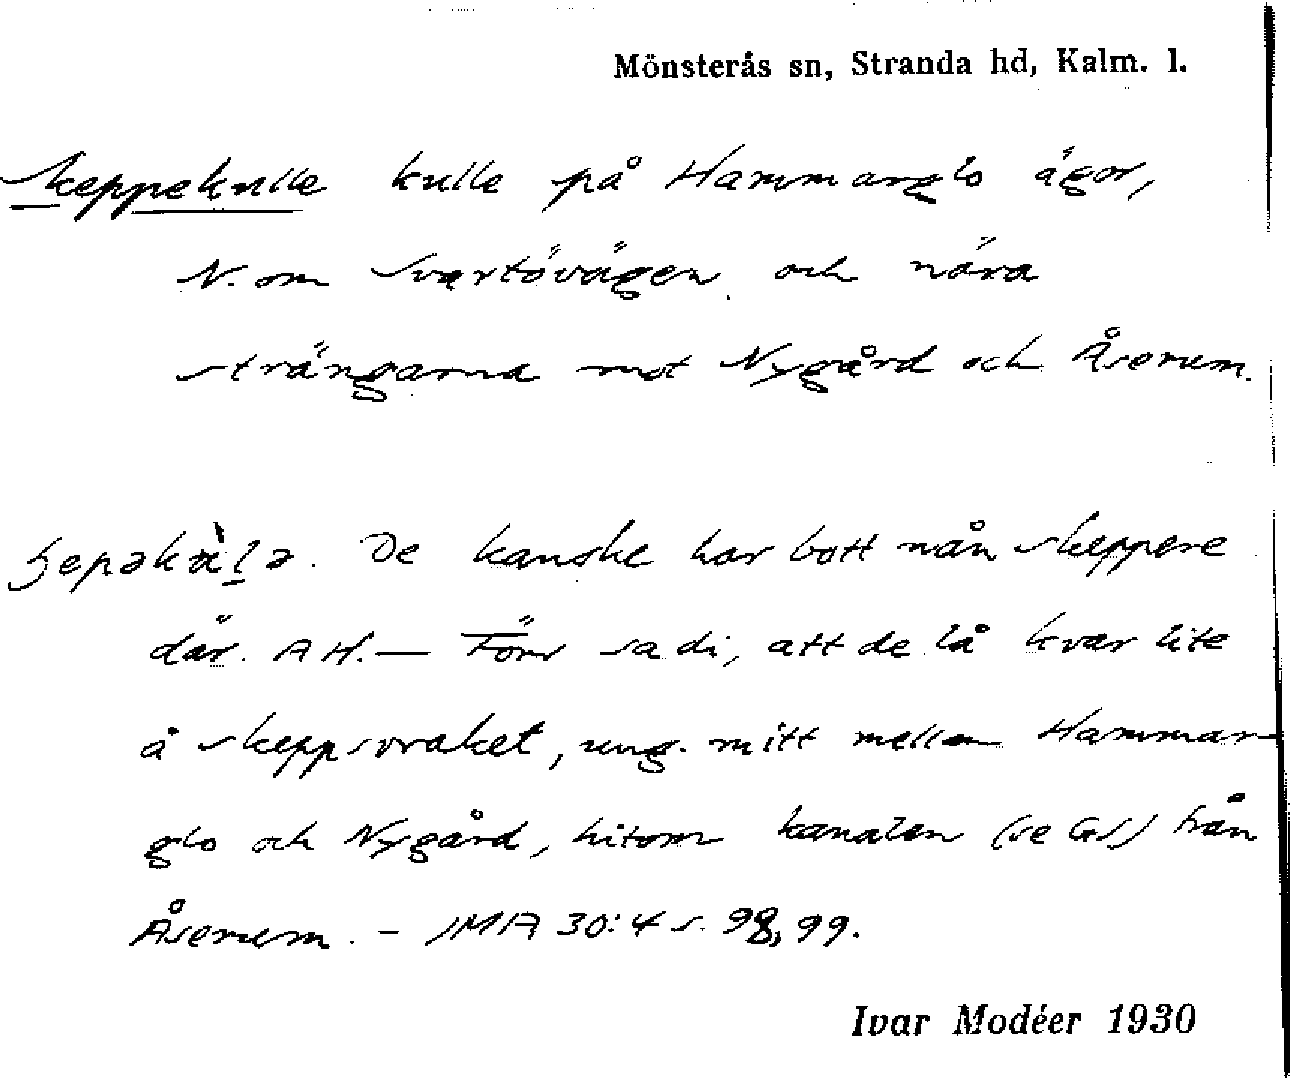 Mönsterås sn, Stranda hd, Kalm. l.
Skeppekulle kulle på Hammarglo ägor,
N. om Svartövägen och nära
strängarna mot Nygård och Åserum.
De kanske har bott nån skeppere
där. AH. — Förr sa di, att de lå kvar lite
å skeppsvraket, ung. mitt mellan Hammar-
glo och Nygård, hitom kanalen (se GS) från
Åserum. - IMA 30:4 s. 98, 99.
Ivar Modéer 1930